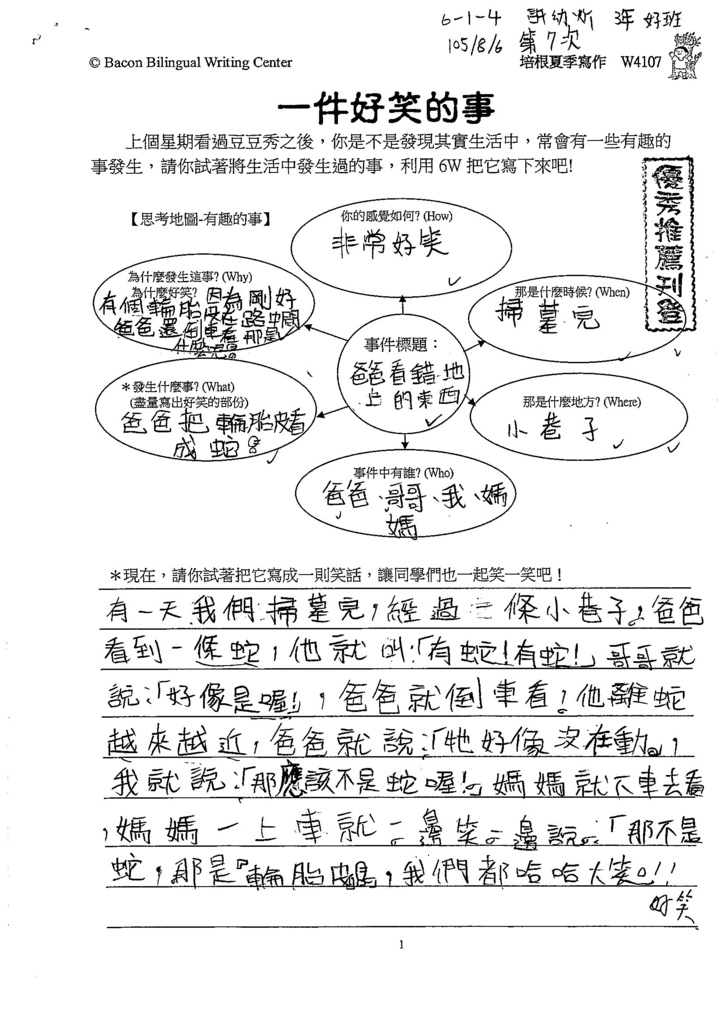 6-1-4 許幼炘 3年 好班
105/8/6 第7次
© Bacon Bilingual Writing Center
培根夏季寫作 W4107
一件好笑的事
上個星期看過豆豆秀之後，你是不是發現其實生活中，常會有一些有趣的
事發生，請你試著將生活中發生過的事，利用 6W 把它寫下來吧!
優秀推薦刊登
【思考地圖-有趣的事】
你的感覺如何? (How)
非常好笑
為什麼發生這事? (Why)
為什麼好笑?
有個輪胎皮在路中間
因為剛好
爸爸還倒車看那是
什麼呢。
那是什麼時候? (When)
掃墓完
事件標題：
爸爸看錯地
上的東西
＊發生什麼事? (What)
(盡量寫出好笑的部份)
爸爸把輪胎皮看
成蛇。
那是什麼地方? (Where)
小巷子
事件中有誰? (Who)
爸爸、哥哥、我、媽
媽
＊現在，請你試著把它寫成一則笑話，讓同學們也一起笑一笑吧！
有一天我們掃墓完，經過一條小巷子，爸爸
看到一條蛇，他就叫:「有蛇!有蛇!」哥哥就
說:「好像是喔!」，爸爸就倒車看，他離蛇
越來越近，爸爸就說:「牠好像沒在動。」，
我就說:「那應該不是蛇喔!」媽媽就下車去看
，媽媽一上車就一邊笑一邊說:「那不是
蛇，那是『輪胎皮』」，我們都哈哈大笑!!
好笑
1